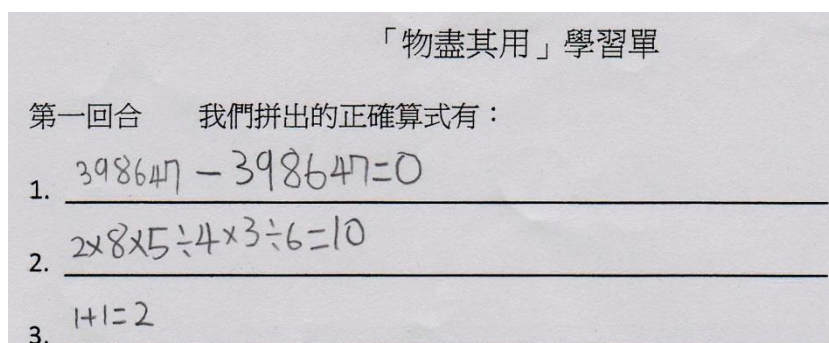 「物盡其用」學習單
第一回合 我們拼出的正確算式有：
1. 398647－398647=0
2. 2×8×5÷4×3÷6=10
3. 1+1=2